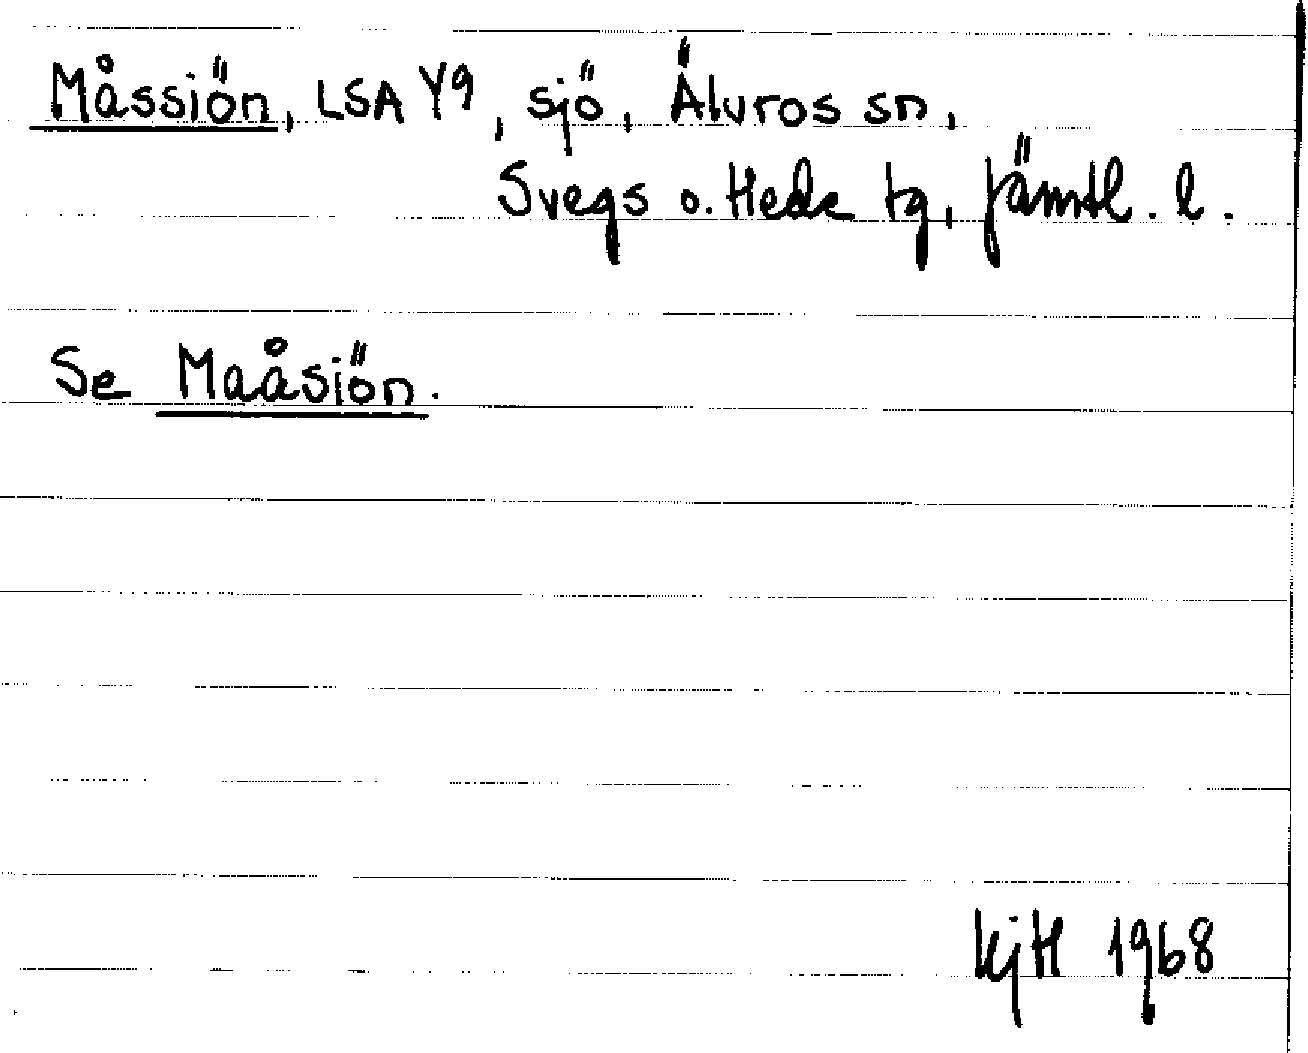 Måssiön, LSA Y9, sjö, Älvros sn,
Svegs o. Hede tg, Jämtl. l.
Se Maåsiön.
KjH 1968